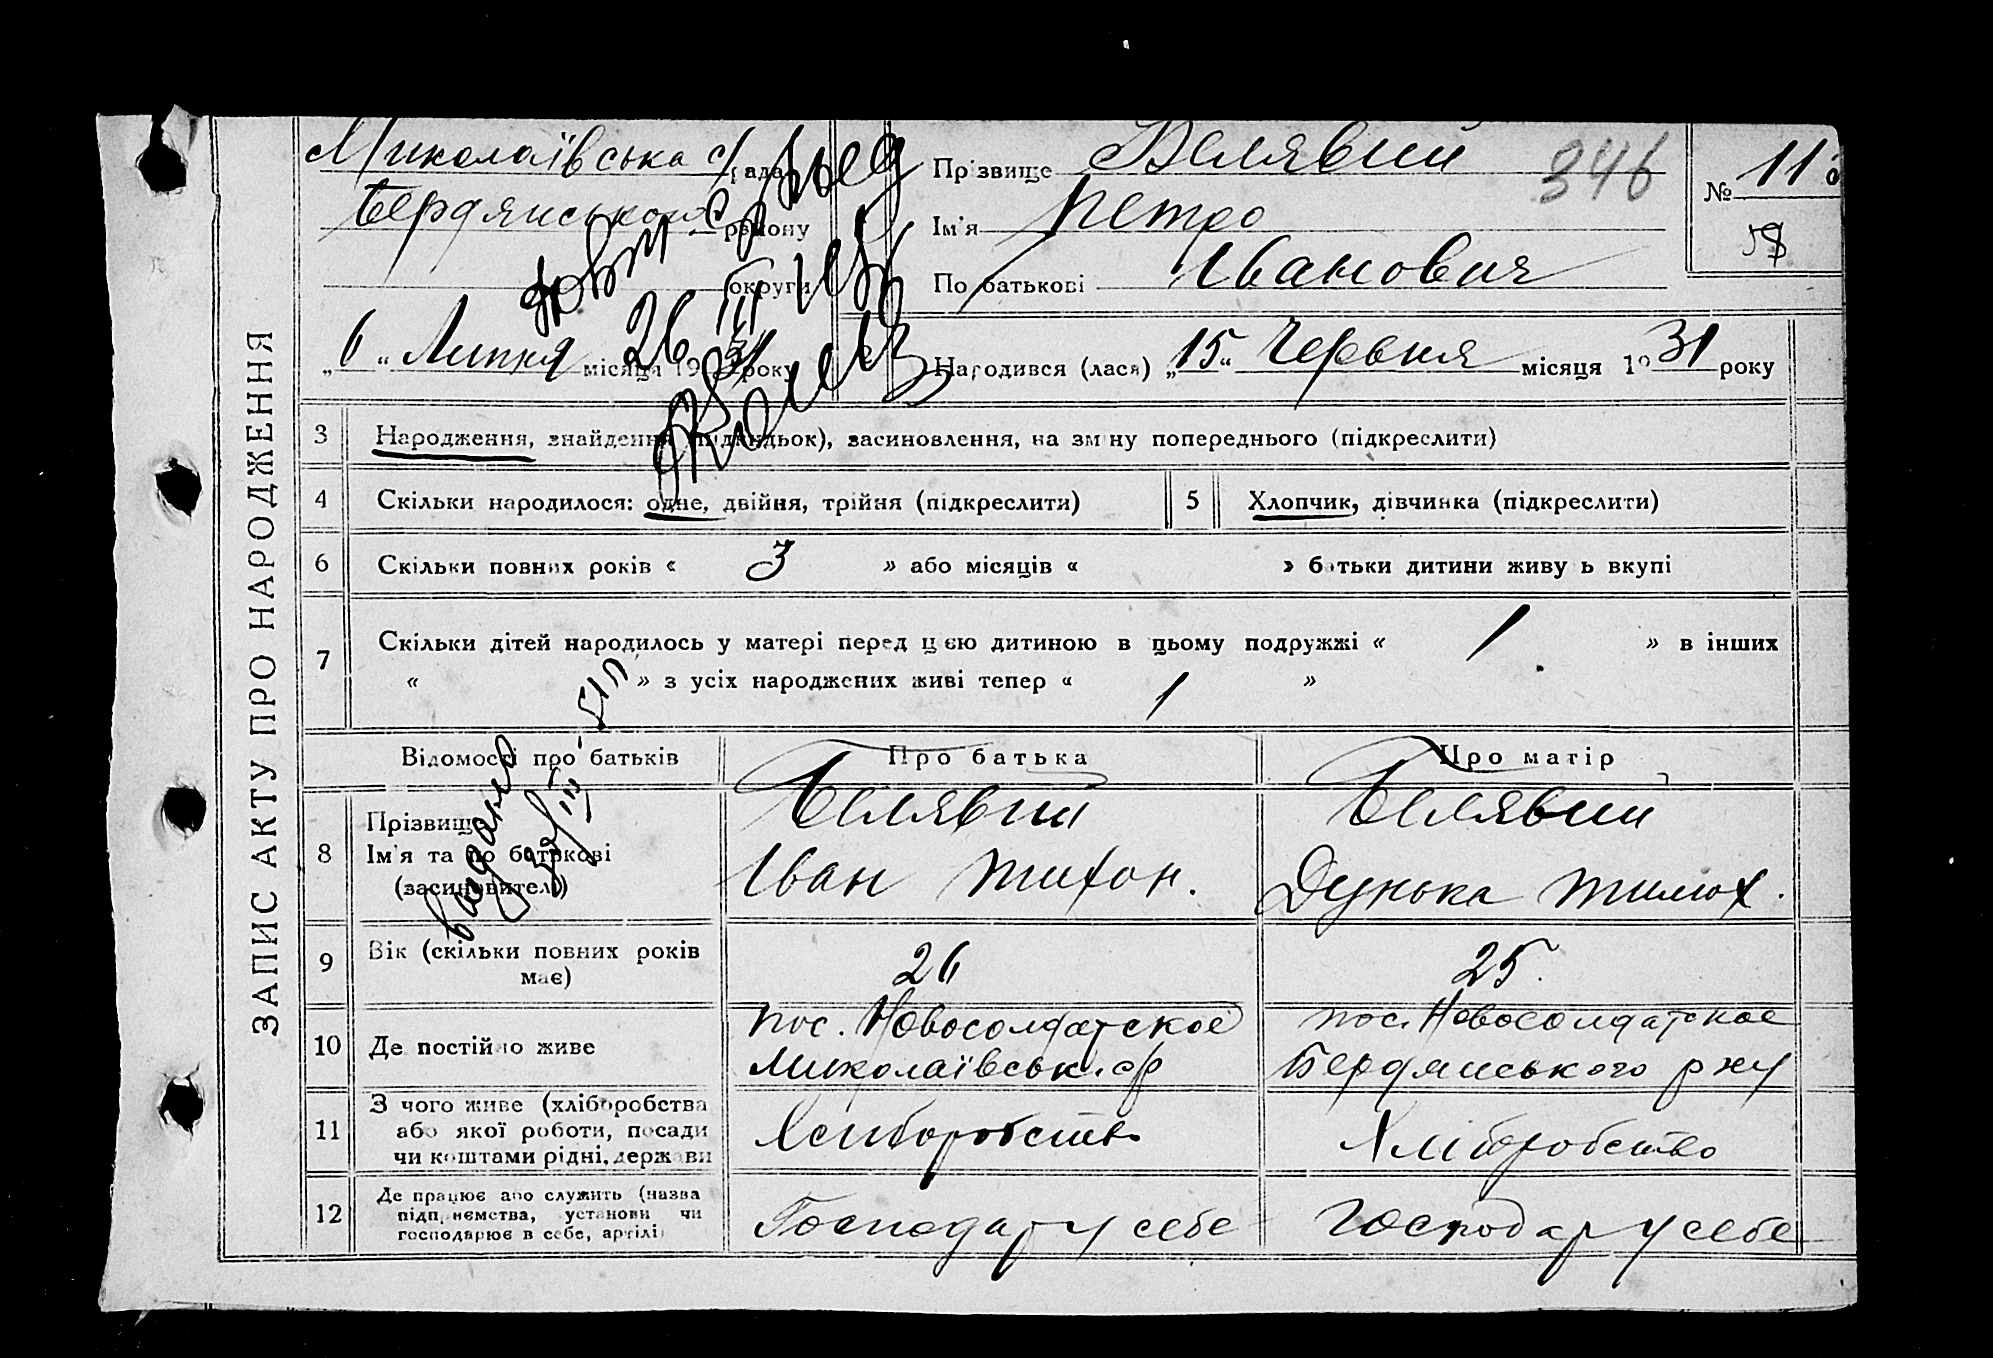 ЗАПИС АКТУ ПРО НАРОДЖЕННЯ
Миколаївська с/рада
Бердянського району
округи
„6“ Липня місяця 1931 року
Прізвище Белявий
Ім'я Петро
По батькові Іванович
346
№ 11
Народився (лася) „15“ Червня місяця 1931 року
3 Народження, знайдення (підкидьок), засиновлення, на зміну попереднього (підкреслити)
4 Скільки народилося: одне, двійня, трійня (підкреслити)
5 Хлопчик, дівчинка (підкреслити)
6 Скільки повних років « 3 » або місяців « » батьки дитини живуть вкупі
7 Скільки дітей народилось у матері перед цією дитиною в цьому подружжі « 1 » в інших
« » з усіх народжених живі тепер « 1 »
Відомості про батьків Про батька Про матір
8 Прізвище Белявий Белявий
Ім'я та по батькові Іван Тихон. Дунька Тимох.
(засиновителі)
видано
9 Вік (скільки повних років має) 26 25.
10 Де постійно живе пос. Новосолдатское пос. Новосолдатское
Миколаївськ. с/р Бердянського р-ну
11 З чого живе (хліборобства
або якої роботи, посади
чи коштами рідні, держави
Хліборобство Хліборобство
12 Де працює або служить (назва
підприємства, установи чи
господарює в себе, артілі)
Господар у себе Господар у себе